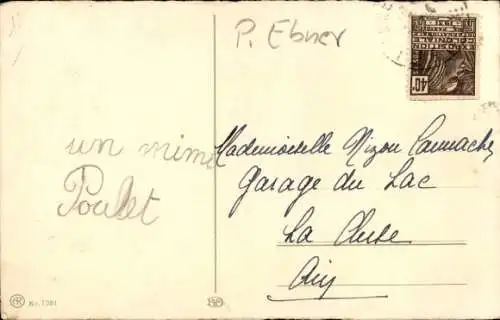 P. Ebner
un mimi
Poulet
Mademoiselle Nizou
Garage du Lac
La Cluse
Ain
40c
No. 7381